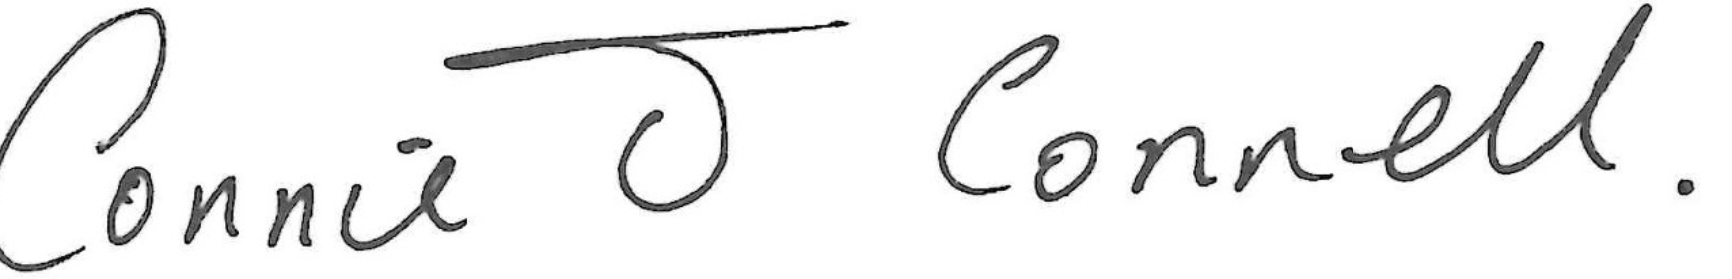 Connie J Connell.